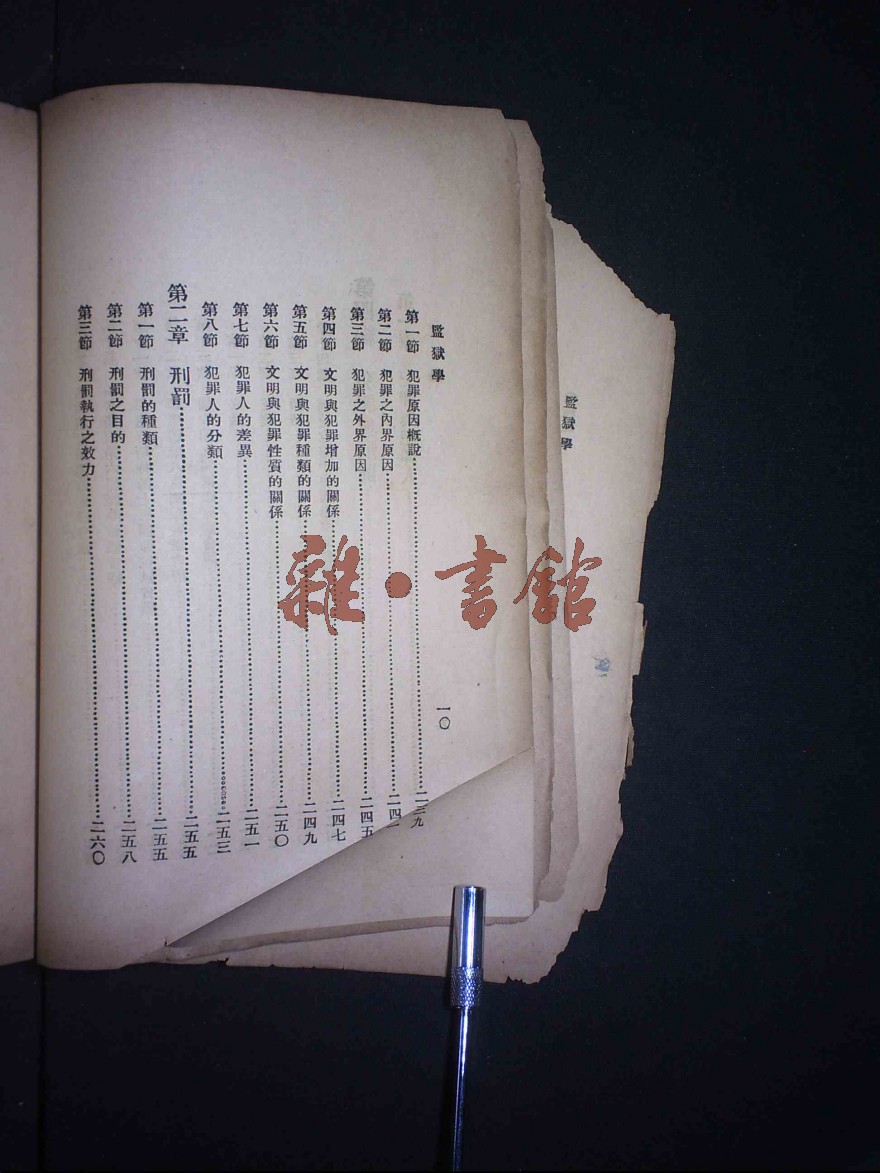 監獄學
監獄學
一〇
第一節 犯罪原因概說……二三九
第二節 犯罪之內界原因……二四
第三節 犯罪之外界原因……二四五
第四節 文明與犯罪增加的關係……二四七
第五節 文明與犯罪種類的關係……二四九
第六節 文明與犯罪性質的關係……二五〇
第七節 犯罪人的差異……二五一
第八節 犯罪人的分類……二五三
第二章 刑罰……二五五
第一節 刑罰的種類……二五五
第二節 刑罰之目的……二五八
第三節 刑罰執行之效力……二六〇
雜·書館